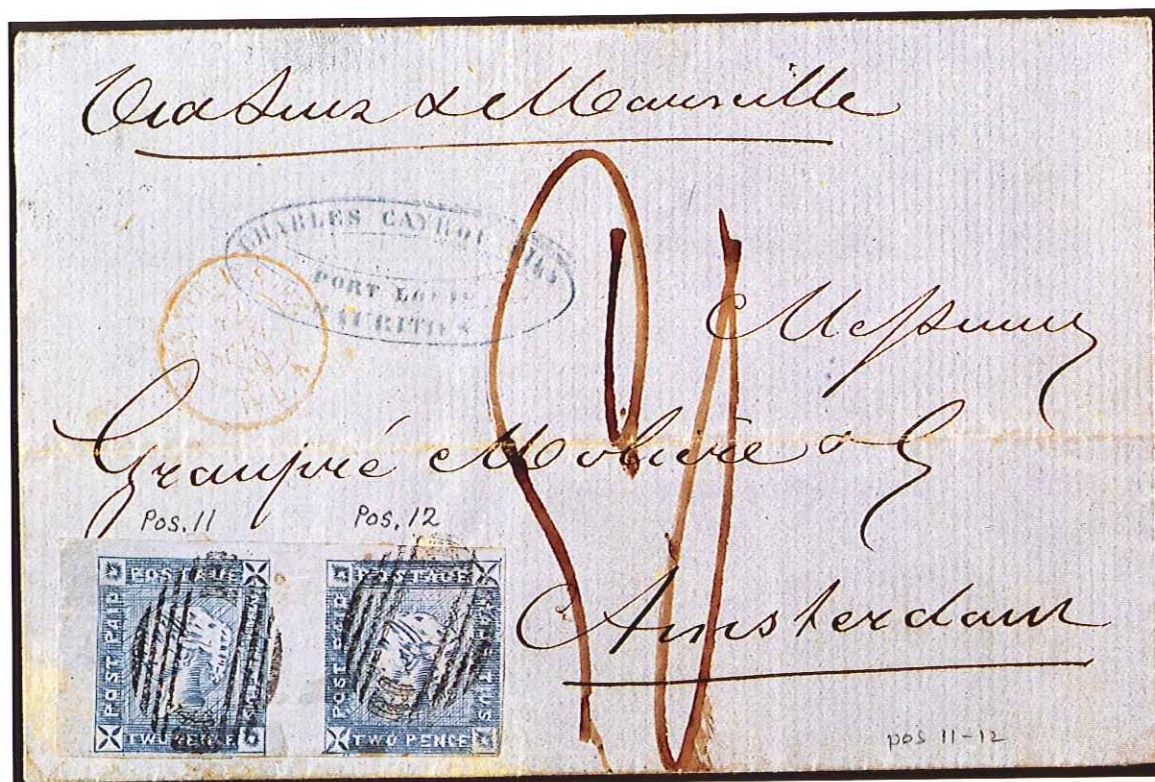 Via Suez & Marseille
CHARLES CAYROU
PORT LOUIS
MAURITIUS
Messieurs
Granpré Molière & C
Amsterdam
Pos. 11
Pos. 12
POSTAGE
POST PAID
MAURITIUS
TWO PENCE
POSTAGE
POST PAID
MAURITIUS
TWO PENCE
pos 11-12